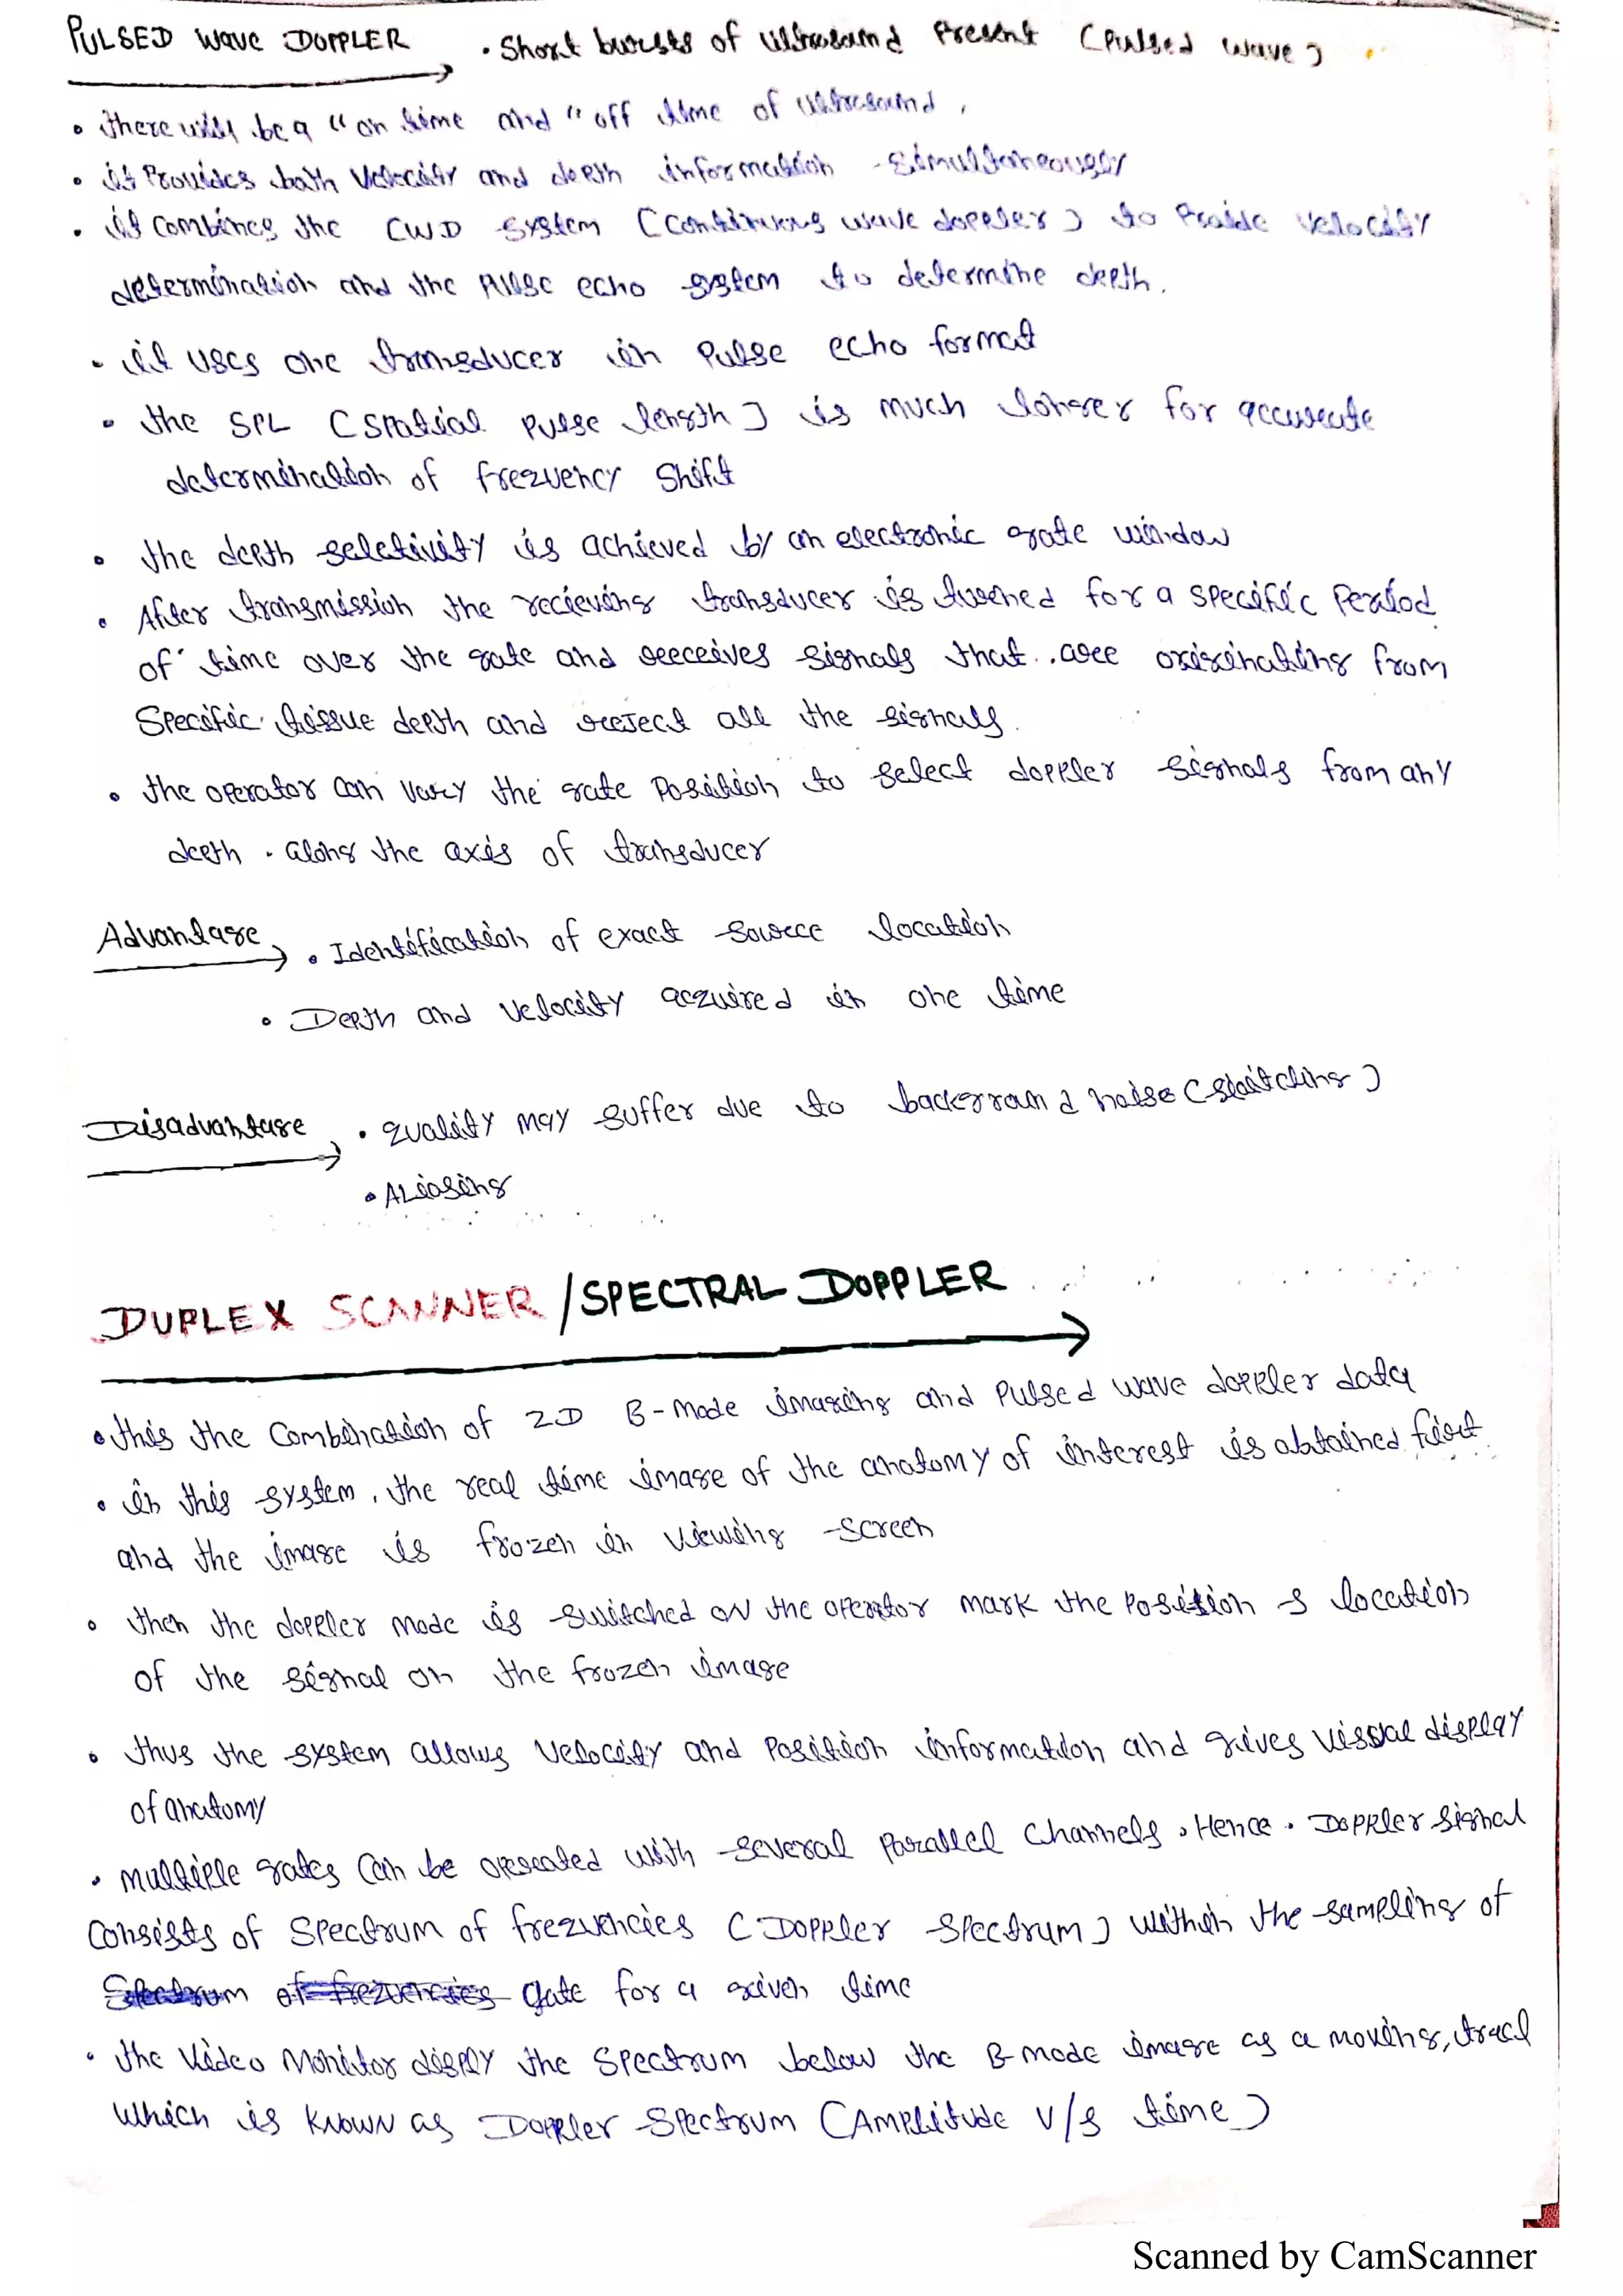 PULSED wave DOPPLER • Short bursts of ultrasound Present (Pulsed wave)
• there will be a "on time and "off time of ultrasound,
• it Provides both velocity and depth information - simultaneously
• it combines the CWD system (continuous wave doppler) to Provide velocity
determination and the Pulse echo system to determine depth.
• it uses one transducer in Pulse echo format
• the SPL (spatial pulse length) is much longer for accurate
determination of frequency shift
• the depth seletivity is achieved by an electronic gate window
• After transmission the recieving transducer is turned for a specific Period
of time over the gate and receives signals that are originating from
Specific tissue depth and reject all the signals.
• the operator can vary the gate Position to select doppler signals from any
depth . along the axis of transducer
Advantage • Identification of exact source location
• Depth and velocity acquired in one time
Disadvantage • quality may suffer due to background noise (switching)
• ALiasing
DUPLEX SCANNER / SPECTRAL DOPPLER
• this the combination of 2D B-mode imaging and Pulsed wave doppler data
• in this system, the real time image of the anatomy of interest is obtained first
and the image is frozen in viewing screen
• then the doppler mode is switched ON the operator mark the Position & location
of the signal on the frozen image
• thus the system allows velocity and Position information and gives visual display
of anatomy
• multiple gates can be operated with several parallel channels, Hence . Doppler signal
consists of spectrum of frequencies (Doppler spectrum) within the sampling of
Spectrum of frequencies gate for a given time
• the video monitor disply the spectrum below the B-mode image as a moving,
which is KNOWN as Doppler spectrum (Amplitude v/s time)
Scanned by CamScanner